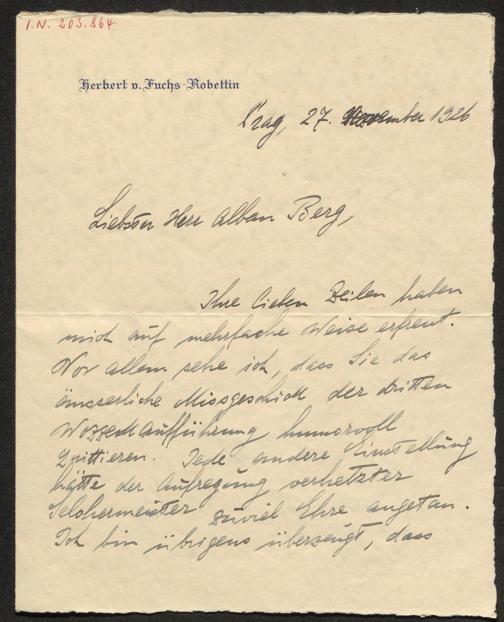 I.N. 203.864
Herbert v. Fuchs-Robettin
Prag, 27. November 1926
Liebster Herr Alban Berg,
Ihre lieben Zeilen haben
mich auf mehrfache Weise erfreut.
Vor allem sehe ich, dass Sie das
äusserliche Missgeschick der dritten
Wozzeckaufführung humorvoll
quittieren. Jede andere Einstellung
hätte der Aufregung verhetzter
Selchermeister zuviel Ehre angetan.
Ich bin übrigens überzeugt, dass